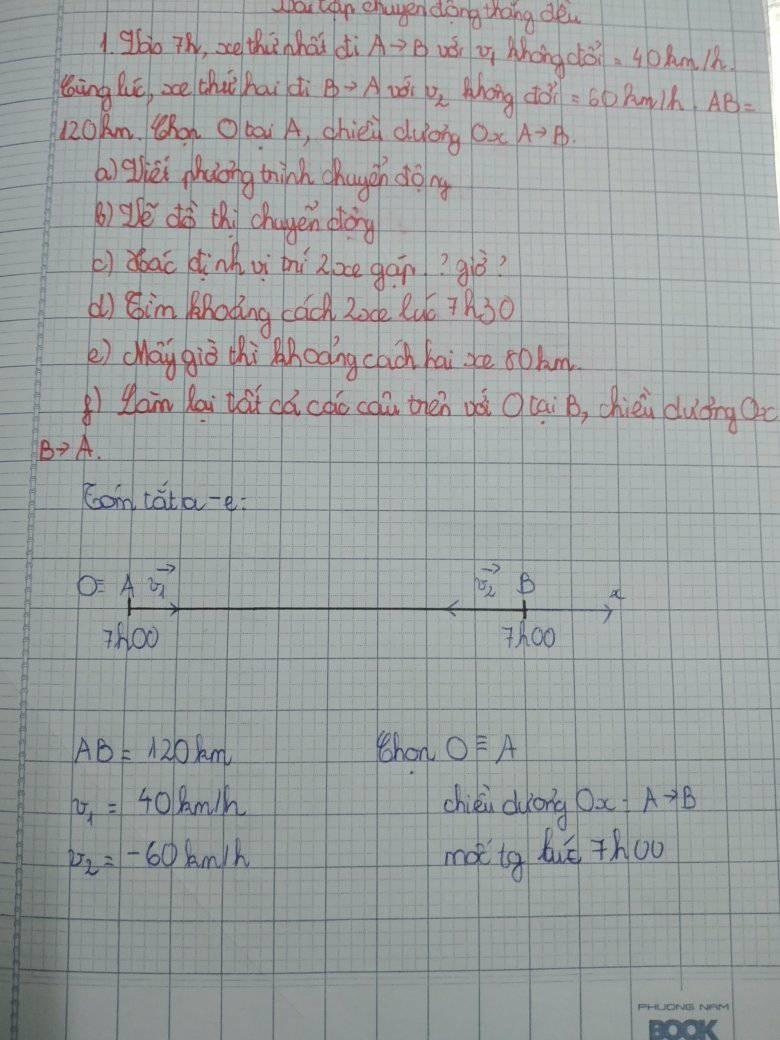 Bài tập chuyển động thẳng đều
1. Vào 7h, xe thứ nhất đi A→B với v₁ không đổi = 40km/h.
Cùng lúc, xe thứ hai đi B→A với v₂ không đổi = 60km/h. AB =
120km. Chọn O tại A, chiều dương Ox A→B.
a) Viết phương trình chuyển động
b) Vẽ đồ thị chuyển động
c) Xác định vị trí 2 xe gặp. ? giờ?
d) Tìm khoảng cách 2 xe lúc 7h30
e) Mấy giờ thì khoảng cách hai xe 80km.
f) Làm lại tất cả các câu trên với O tại B, chiều dương Ox
B→A.
Tóm tắt a-e:
O≡ A v₁→ v₂→ B x
7h00 7h00
AB = 120km Chọn O ≡ A
v₁ = 40km/h chiều dương Ox: A→B
v₂ = -60km/h mốc tg lúc 7h00
PHUONG NAM
BOOK